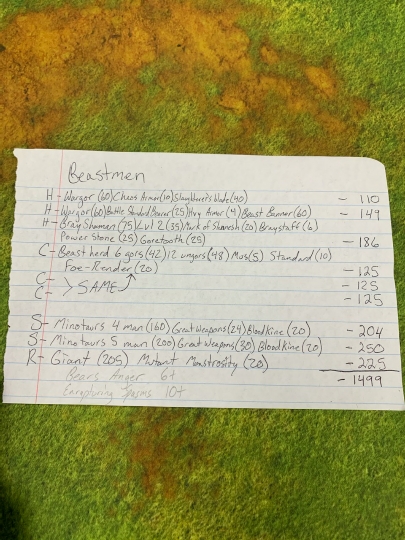 Beastmen
H - Wargor (60) Chaos Armor (10) Slaughterer's Blade (40) - 110
H - Wargor (60) Battle Standard Bearer (25) Hvy Armor (4) Beast Banner (60) - 149
H - Bray Shaman (75) Lvl 2 (35) Mark of Slaanesh (20) Braystaff (6)
Power Stone (25) Goretooth (25) - 186
C - Beast herd 6 gors (42) 12 ungors (48) Mus (5) Standard (10)
Foe-Render (20) - 125
C - - 125
C - > SAME - 125
S - Minotaurs 4 man (160) Great Weapons (24) Bloodkine (20) - 204
S - Minotaurs 5 man (200) Great Weapons (30) Bloodkine (20) - 250
R - Giant (205) Mutant Monstrosity (20) - 225
Bears Anger 6+ - 1499
Enrapturing Spasms 10+